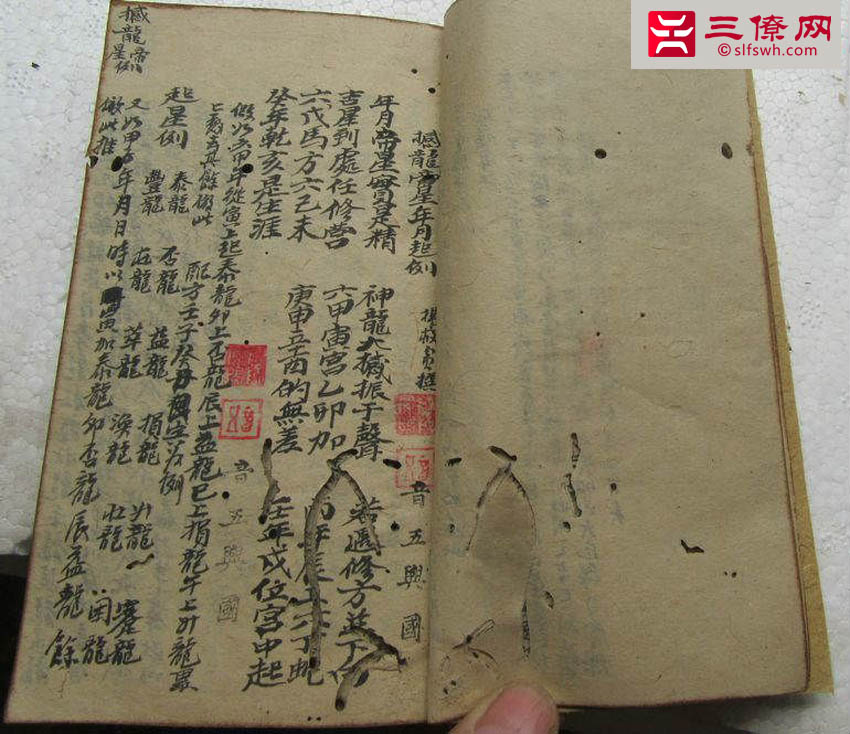 三僚网
slfswh.com
撼龍帝星年月起例 楊救貧撰
年月帝星實是精 神龍大撼振于聲 若遇修方並下
吉星到處任修營 六甲寅宮乙卯加 丙年辰上六丁蛇
六戊馬方六己未 庚申辛酉的無差 壬年戌位宮中起
癸年乾亥是生涯
假如六甲年從寅上起泰龍卯上否龍辰上益龍巳上損龍午上升龍
上數去其餘倣此 配方壬子癸丑
起星例
泰龍 否龍 益龍 損龍 升龍 蹇龍
豐龍 旺龍 萃龍 渙龍 壯龍 龍
又如甲子年月日時以寅加泰龍卯否龍辰益龍餘
倣此推
撼龍帝星例
音五興國
音五興國